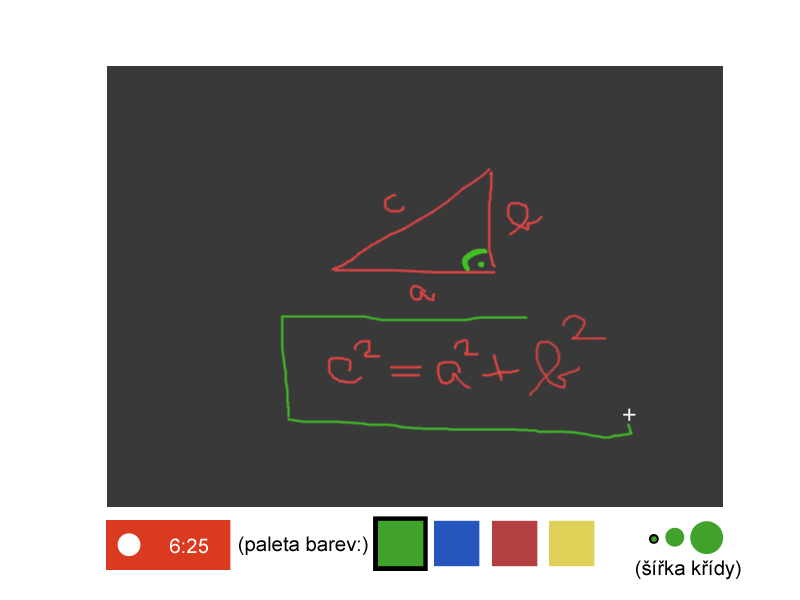 c
b
a
c² = a² + b²
6:25 (paleta barev:)
(šířka křídy)